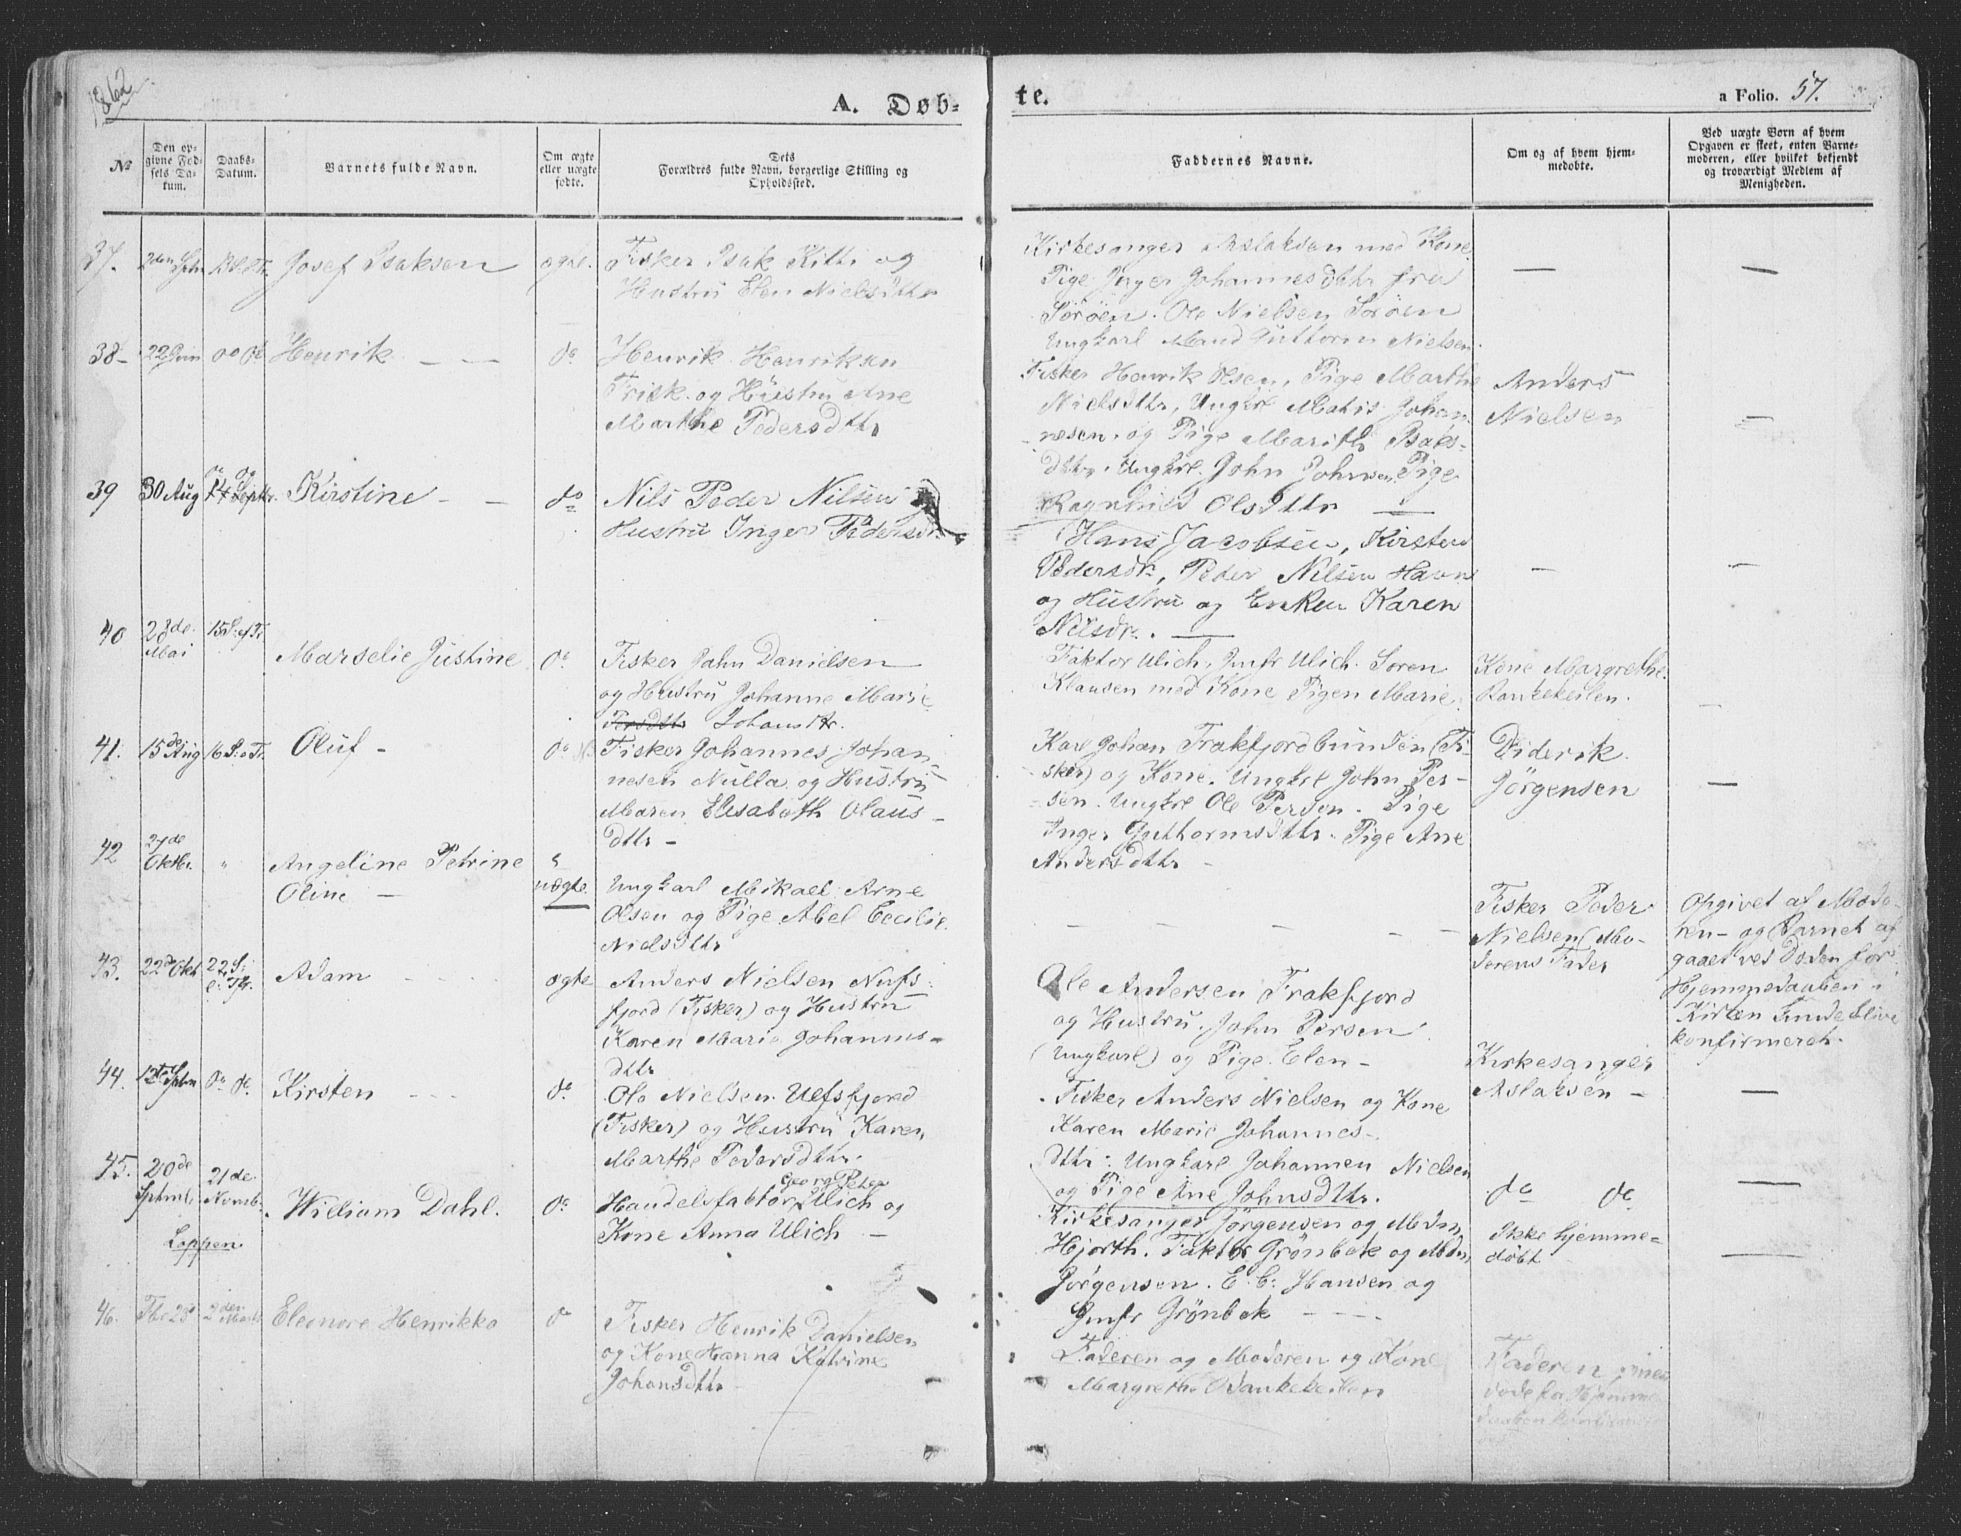 1862
A. Døb-
te.
a Folio. 57.
No
Den op-
givne Fød-
sels Da-
tum.
Daabs-
Datum.
Barnets fulde Navn.
Om ægte
eller uægte
fødte.
Dets
Forældres fulde Navn, borgerlige Stilling og
Opholdssted.
Faddernes Navne.
Om og af hvem hjem-
medøbte.
Ved uægte Børn af hvem
Opgaven er skeet, enten Barne-
moderen, eller hvilket bekjendt
og troværdigt Medlem af
Menigheden.
37.
Josef Isaksen
Fisker Isak Kitti og
Hustru Elen Nielsdttr
Kirkesanger Aslaksen med Kone
Pige Inger Johannesdttr fra
Sørøen. Ole Nielsen Sørøen
Ungkarl Mand Guttorm Nielsen.
—
—
38-
22 Juni
Henrik — —
do
Henrik Henriksen
Frisk og Hustru Ane
Marthe Pedersdttr
Fisker Henrik Olsen, Pige Marthe
Nielsdttr, Ungkrl Matis Johan-
nesen, og Pige Marith Isaks-
dttr, Ungkrl. John Johnsen, Pige
Ragnhild Olsdttr —
Anders
Nielsen
—
39
30 Aug
14 Septbr.
Kirstine — —
do
Nils Peder Nilsen
Hustru Inger Pedersdr.
Hans Jacobsen, Kirsten
Pedersdr., Peder Nilsen Havn
og Hustru og Enken Karen
Nilsdr. —
—
—
40
23de
Mai
15 S. ef Tr
Marselie Justine
do
Fisker Jahn Danielsen
og Hustru Johanne Marie
Johansdtr.
Faktor Ulich, Jmfr Ulich. Søren
Klausen med Kone Pigen Marie.
Kone Margrethe
—
41.
15de Aug
16 S. e Tr.
Oluf -
do
Fisker Johannes Johan-
nesen Nulla og Hustru
Maren Elisabeth Olaus-
dttr -
Karl Johan Frakfjordbunden (Fi-
sker) og Kone. Ungkrl John Per-
sen. Ungkrl Ole Persen. Pige
Inger Guthormsdttr. Pige Ane
Andersdttr -
Diderik
Jörgensen
—
42
Oktbr.
"
Angeline Petrine
Oline —
uægte
Ungkarl Mikael Arne
Olsen og Pige Abel Cecilie
Nielsdttr
— — — — —
Fisker Peder
Nielsen (Mo-
derens Fader
Opgivet af Mode-
ren - og Barnet af
gaaet ved Døden for
Hjemmedaaben i
Kirken kunde blive
konfirmeret.
43.
22de Okt
22 S.
e. Tr.
Adam
ægte
Anders Nielsen Ulfs-
fjord (Fisker) og Hustru
Karen Marie Johannes-
dttr
Ole Andersen Frakfjord
og Hustru. John Persen
(Ungkarl) og Pige Elen -
Kirkesanger
Aslaksen -
—
44.
do do.
Kirsten
do
Ole Nielsen Ulfsfjord
(Fisker) og Hustru Karen
Marthe Pedersdttr.
Fisker Anders Nielsen og Kone
Karen Marie Johannes-
dttr. Ungkarl Johannes Nielsen
og Pige Ane Johnsdttr.
do do
—
45.
20de
Sptmb.
21de
Novmb.
William Dahl.
Loppen
do
Georg Peter
Handelsfaktor Ulich og
Kone Anna Ulich —
Kirkesanger Jørgensen og Mdm
Hjorth. Faktor Grönbek og Mdm
Jørgensen. E. C. Hansen og
Jmfr Grönbek
Ikke hjemme-
døbt
—
46.
Eleonore Henrikka
Fisker Henrik Danielsen
og Kone Hanna Katrine
Johansdttr
Faderen og Moderen og Kone
Margrethe
Faderen